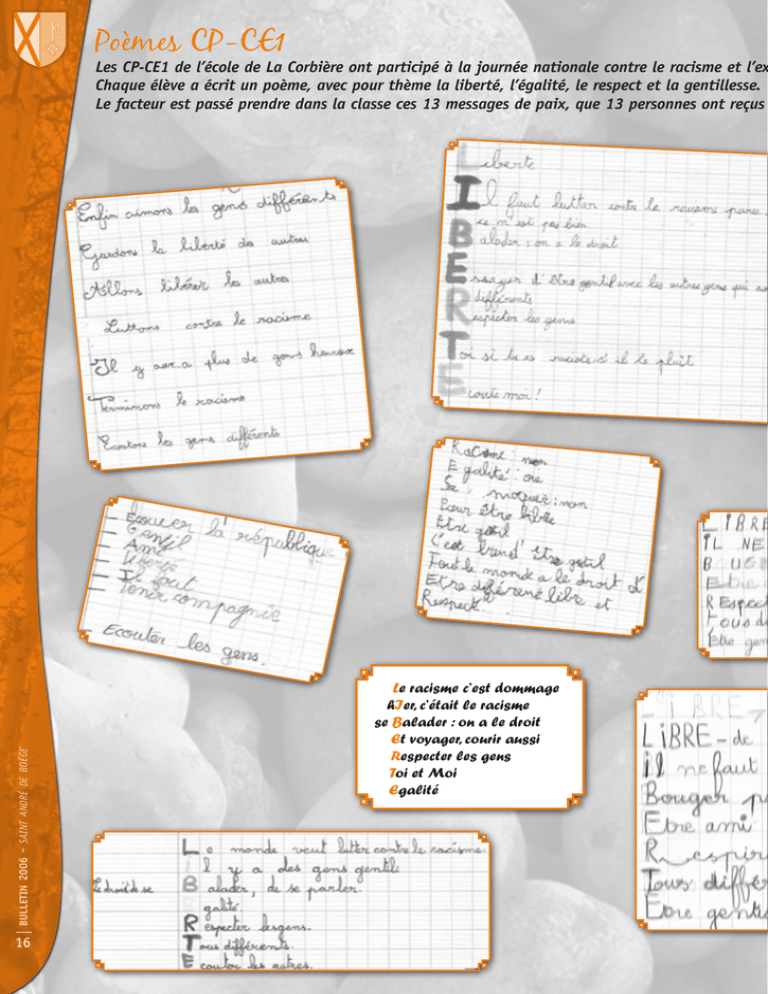 Poèmes CP-CE1
Les CP-CE1 de l'école de La Corbière ont participé à la journée nationale contre le racisme et l'ex
Chaque élève a écrit un poème, avec pour thème la liberté, l'égalité, le respect et la gentillesse.
Le facteur est passé prendre dans la classe ces 13 messages de paix, que 13 personnes ont reçus
Enfin aimons les gens différents
Gardons la liberté des autres
Allons libérer les autres
Luttons contre le racisme
Il y aura plus de gens heureux
Terminons le racisme
Ecoutons les gens différents
Liberté
Il faut lutter contre le racisme parce
ce n'est pas bien
Balader : on a le droit
Essayer d'être gentil avec les autres gens qui
différents
Respecter les gens
Toi si tu es raciste s'il te plaît
Ecoute moi !
Racisme : non
Egalité : oui
Se moquer : non
Pour être libre
Etre
C'est être
Tout le monde a le droit d'
Etre libre et
Respect
la république
Gentil
Ami
Liberté
Il faut
Tenir compagnie
Ecouter les gens.
LIBRE
IL NE
BOUGE
Etre
RESpect
Tous di
Etre gen
Le racisme c'est dommage
hIer, c'était le racisme
se Balader : on a le droit
Et voyager, courir aussi
Respecter les gens
Toi et Moi
Egalité
LIBRE
LiBRE - de
il ne faut
Bouger
Etre ami
Respir
Tous diffé
Etre genti
Le monde veut lutter contre le racisme.
Il y a des gens gentils
Le droit de se Balader, de se parler.
Egalité
Respecter les gens.
Tous différents.
Ecouter les autres.
BULLETIN 2006 - SAINT ANDRÉ DE BOËGE
16